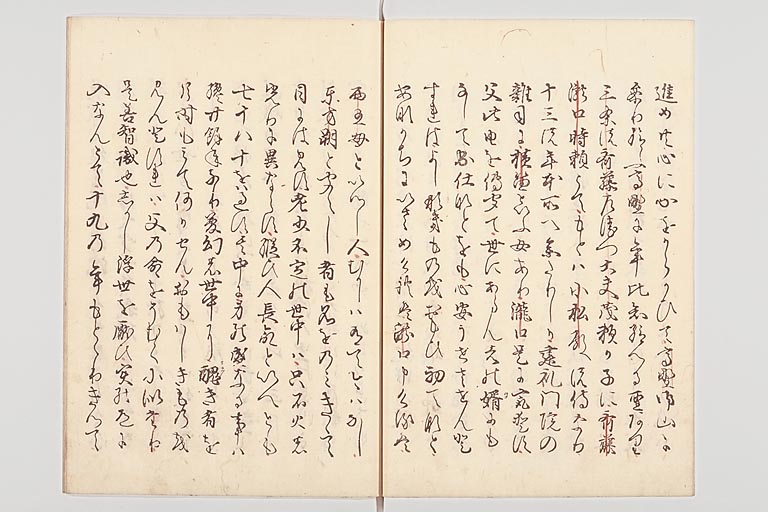 進め共心に心をからかひて高野御山に
参り給ふ高野に年比知給へる聖あり
三条の斎藤左衛門大夫茂頼か子に斎藤
滝口時頼とてもとハ小松殿の侍なり
十三の年本所へ参りしか建礼門院の
雑司に横笛と云ふ女あり瀧口是に最愛す
父此由を傳聞て世にあらん者の婿にも
なして出仕なとをも心安うせさせんと
すれはよしなきものを思ひ初てなと
あなかちにいさめけれは瀧口申けるは
西王母といつし人むかしハ有て今ハなし
東方朔と聞えし者も名をのみきゝて
目には見す老少不定の世中ハ只石火の
光に異ならす縦ひ人長命といへとも
七十八十を過す其中に身の盛なる事ハ
纔廿余年なり夢幻の世中に醜き者を
片時もみて何かせんおもハしきものを
見んとすれハ父の命をそむくに似たり
是善智識也しかし浮世を厭ひ実の道に
入なんとて十九の年もとゝりきつて